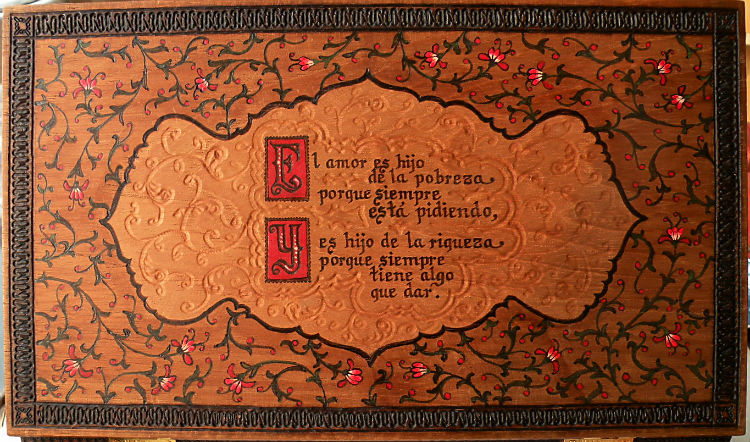 El amor es hijo
de la pobreza
porque siempre
está pidiendo,
Y es hijo de la riqueza
porque siempre
tiene algo
que dar.